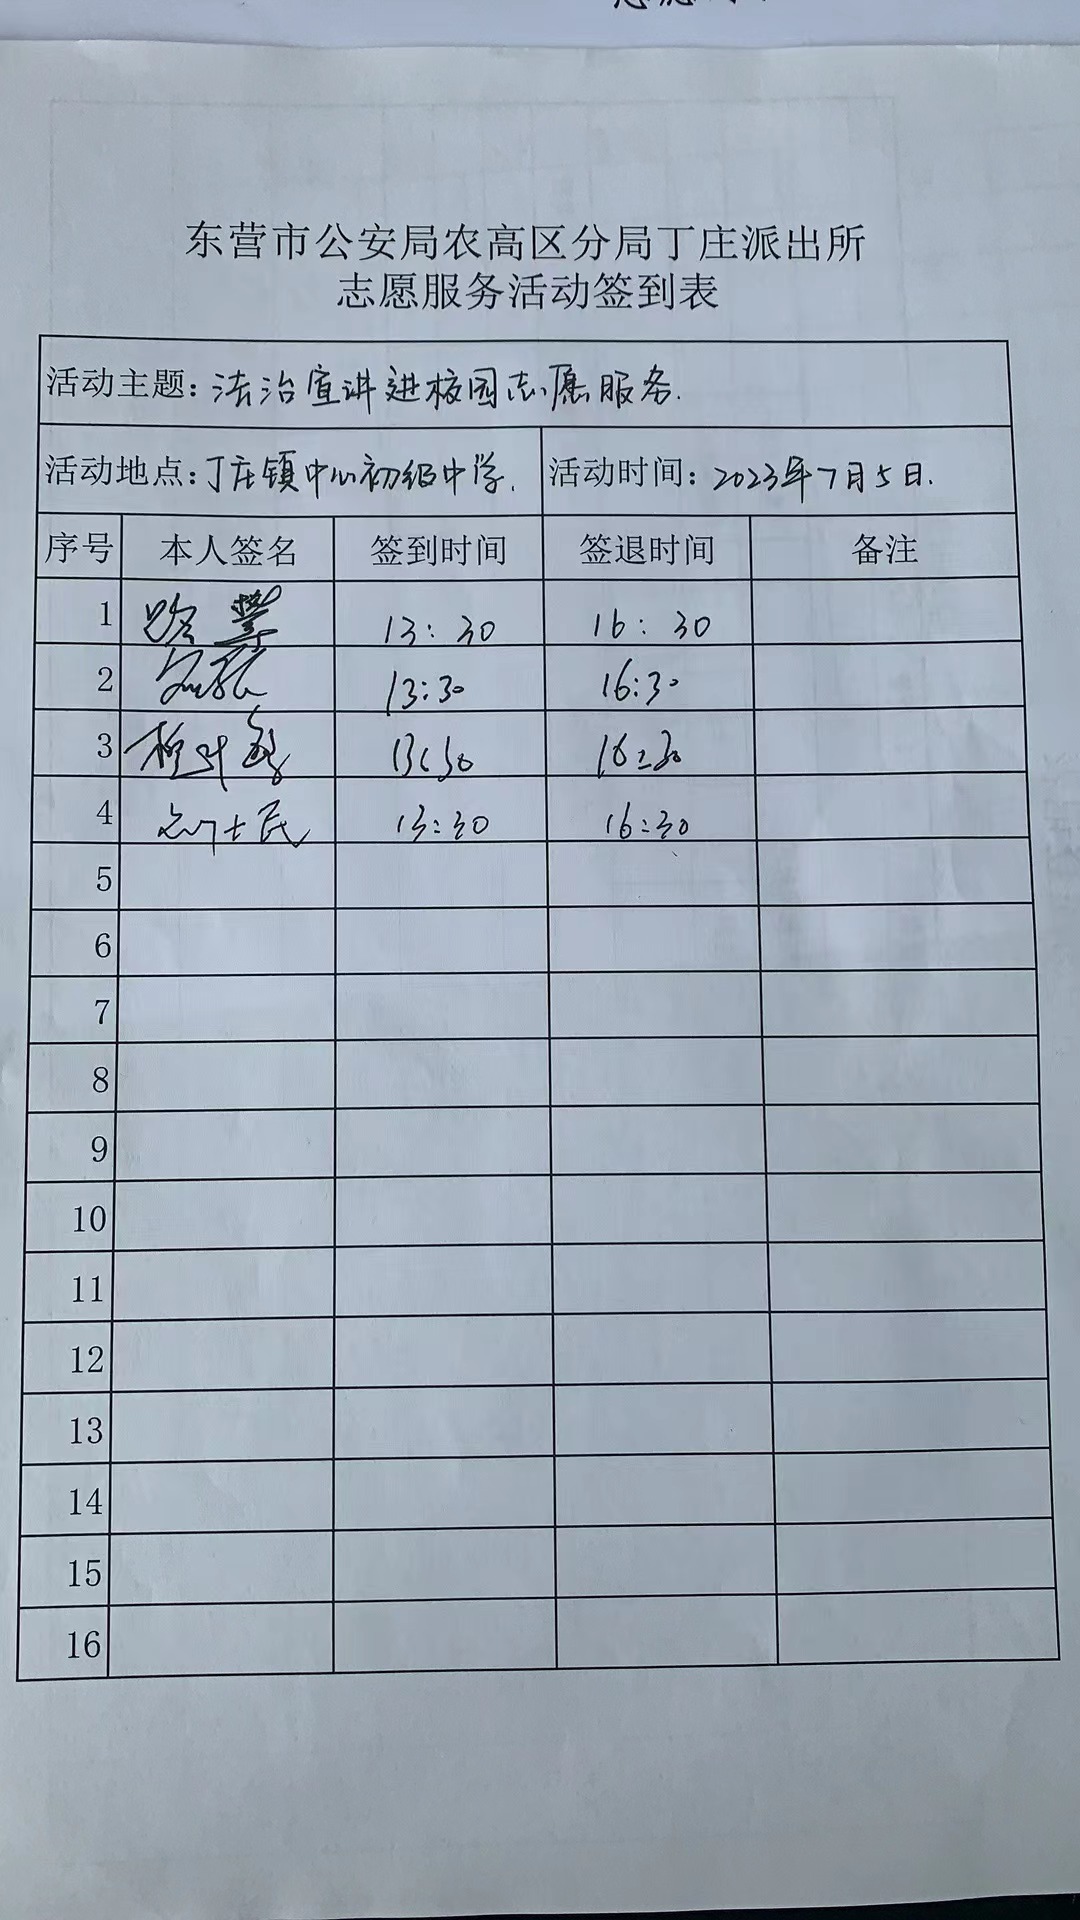 东营市公安局农高区分局丁庄派出所
志愿服务活动签到表
活动主题:法治宣讲进校园志愿服务.
活动地点:丁庄镇中心初级中学. 活动时间:2023年7月5日.
序号 本人签名 签到时间 签退时间 备注
1 13:30 16:30
2 13:30 16:30
3 13:30 16:30
4 13:30 16:30
5
6
7
8
9
10
11
12
13
14
15
16